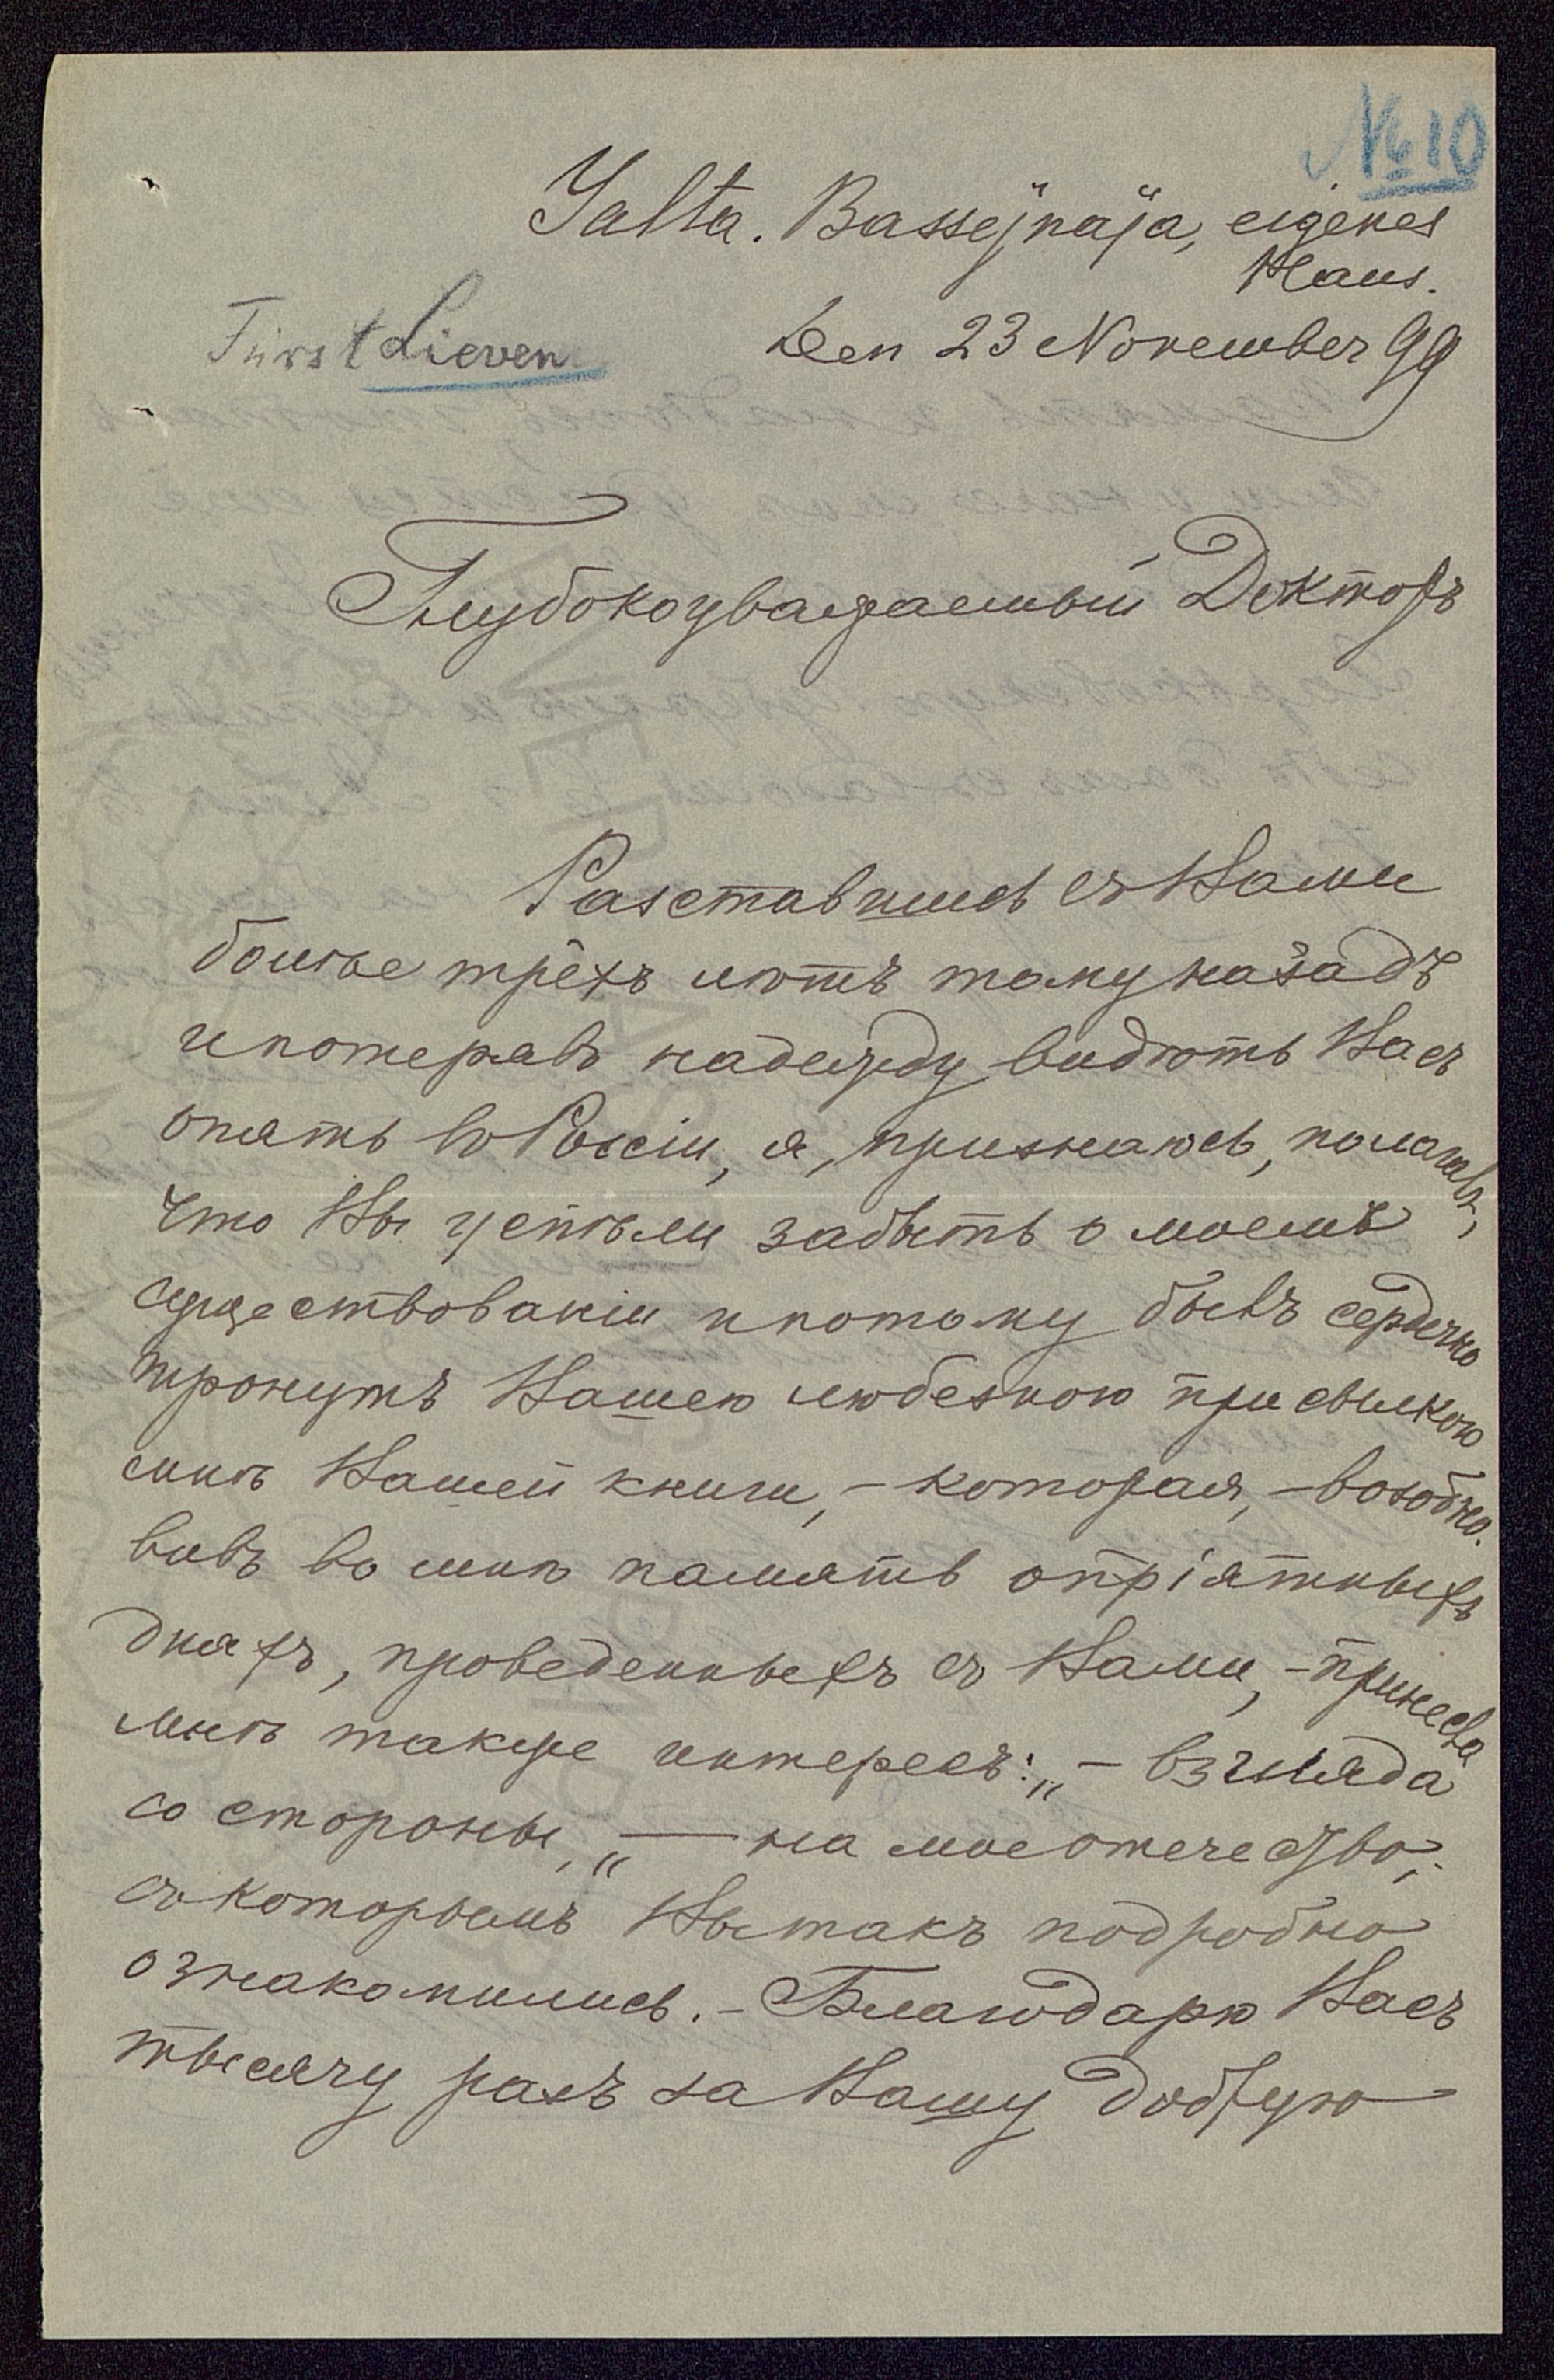 № 10
Yalta. Bassejnaja, eigenes
Haus.
Fürst Lieven
Den 23 November 99
Глубокоуважаемый Докторъ
Разставшись съ Вами
болѣе трёхъ лѣтъ тому назадъ
и потерявъ надежду видѣть Васъ
опять въ Россіи, я, признаюсь, полагалъ,
что Вы успѣли забыть о моемъ
существованіи и потому былъ сердечно
тронутъ Вашею любезною присылкою
мнѣ Вашей книги, – которая, – возобно-
вивъ во мнѣ память о пріятныхъ
дняхъ, проведенныхъ съ Вами, – принесла
мнѣ также интересъ: „ – взгляда
со стороны, „ — на мое отечество,
съ которымъ Вы такъ подробно
ознакомились. – Благодарю Васъ
тысячу разъ за Вашу добрую